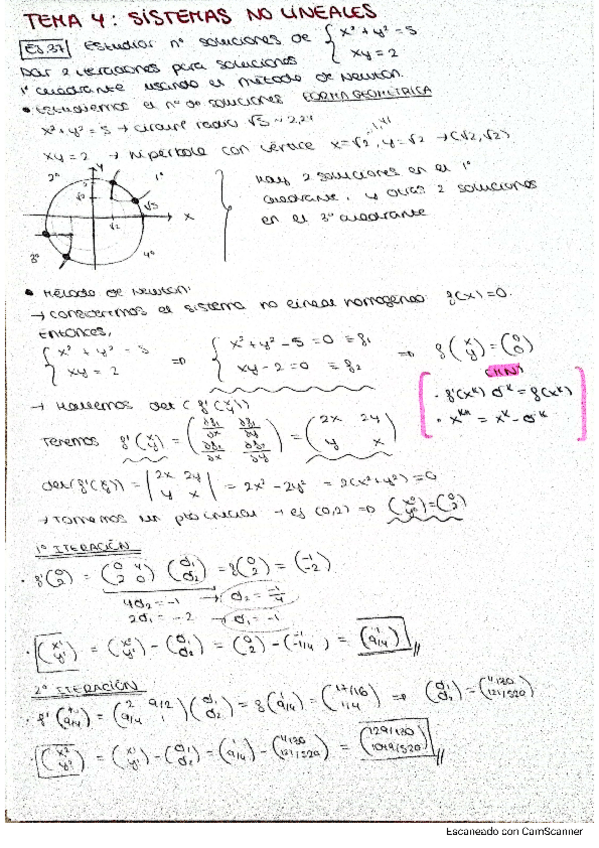 TEMA 4: SISTEMAS NO LINEALES
EJ.37 Estudiar nº soluciones de { x² + y² = 5
xy = 2
Dar 2 iteraciones para soluciones
1º cuadrante usando el método de Newton.
• Estudiemos el nº de soluciones FORMA GEOMÉTRICA
x² + y² = 5 → circunf radio √5 ~ 2,24
xy = 2 → hipérbole con vértice x=√2, y=√2 → (√2,√2)
1,41
Hay 2 soluciones en el 1º
cuadrante, y otras 2 soluciones
en el 3º cuadrante
2º y 1º
√2 √5
√2 x
3º 4º
• Método de Newton:
→ consideremos el sistema no lineal homogeneo f(x)=0.
Entonces,
{ x² + y² = 5 ⇒ { x² + y² - 5 = 0 ≡ f₁ ⇒ f(x y) = (0 0)
xy = 2 xy - 2 = 0 ≡ f₂
f'(xᴷ) σᴷ = f(xᴷ)
xᴷ⁺¹ = xᴷ - σᴷ
→ Hallemos det (f'(x y))
Tenemos f'(x y) = (∂f₁/∂x ∂f₁/∂y ∂f₂/∂x ∂f₂/∂y) = (2x 2y y x)
det(f'(x y)) = |2x 2y y x| = 2x² - 2y² = 2(x²+y²) = 0
→ Tomemos un pto inicial → ej (0,2) ⇒ (x⁰ y⁰) = (0 2)
1º ITERACIÓN
• f'(0 2) = (0 4 2 0) (σ₁ σ₂) = f(0 2) = (-1 -2)
4σ₂ = -1 → σ₂ = -1/4
2σ₁ = -2 → σ₁ = -1
• (x¹ y¹) = (x⁰ y⁰) - (σ₁ σ₂) = (0 2) - (-1 -1/4) = (1 9/4)
2º ITERACIÓN
• f'(1 9/4) = (2 9/2 9/4 1) (σ₁ σ₂) = f(1 9/4) = (17/16 1/4) ⇒ (σ₁ σ₂) = (1/130 121/520)
(x² y²) = (x¹ y¹) - (σ₁ σ₂) = (1 9/4) - (1/130 121/520) = (129/130 1049/520)
Escaneado con CamScanner